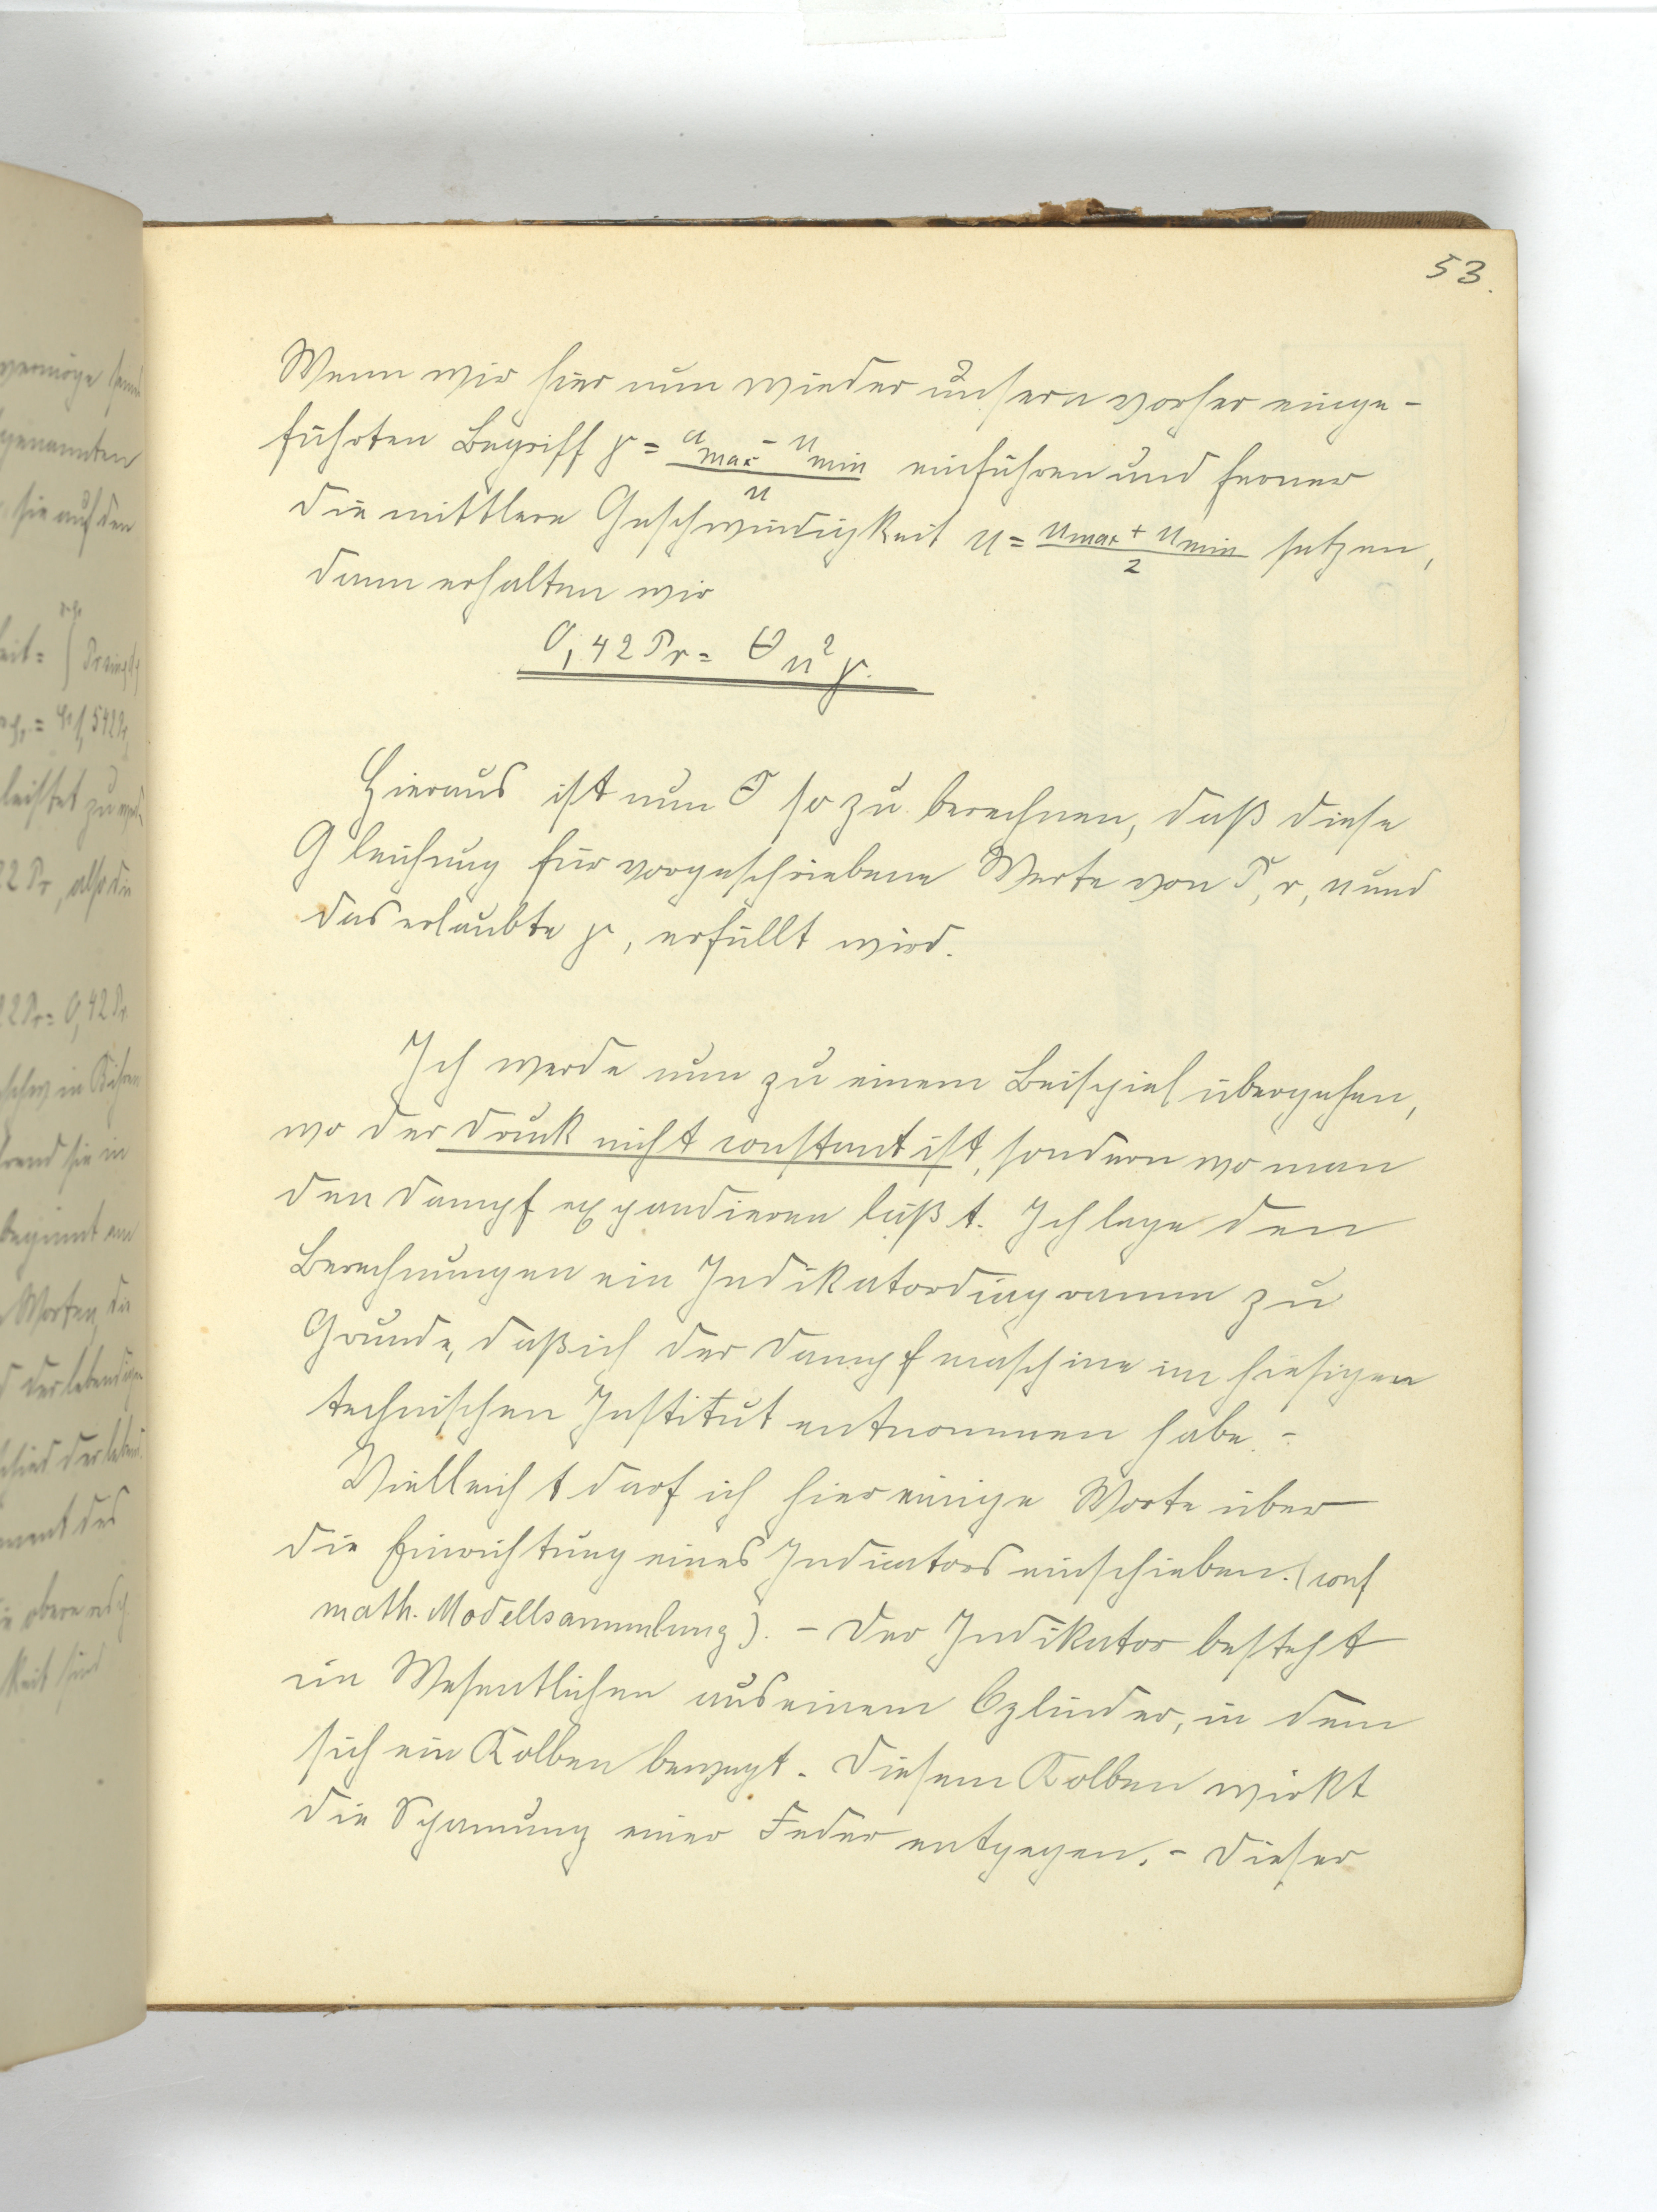 53.
Wenn wir hier nun wieder unsern vorher einge-
führten Begriff γ = (u max - u min)/u einführen und ferner
die mittlere Geschwindigkeit u = (u max + u min)/2 setzen,
dann erhalten wir
0,42 Pr = Θ u² γ.
Hieraus ist nun Θ so zu berechnen, daß diese
Gleichung für vorgeschriebene Werte von P, r, u und
das erlaubte γ, erfüllt wird.
Ich werde nun zu einem Beispiel übergehen,
wo der Druck nicht constant ist, sondern wo man
den Dampf expandieren läßt. Ich lege den
Berechnungen ein Indikatordiagramm zu
Grunde, daß ich der Dampfmaschine im hiesigen
technischen Institut entnommen habe. -
Vielleicht darf ich hier einige Worte über
die Einrichtung eines Indicators einschieben. (conf
math. Modellsammlung). - Der Indikator besteht
im Wesentlichen aus einem Cylinder, in dem
sich ein Kolben bewegt. Diesem Kolben wirkt
die Spannung einer Feder entgegen. - Dieser